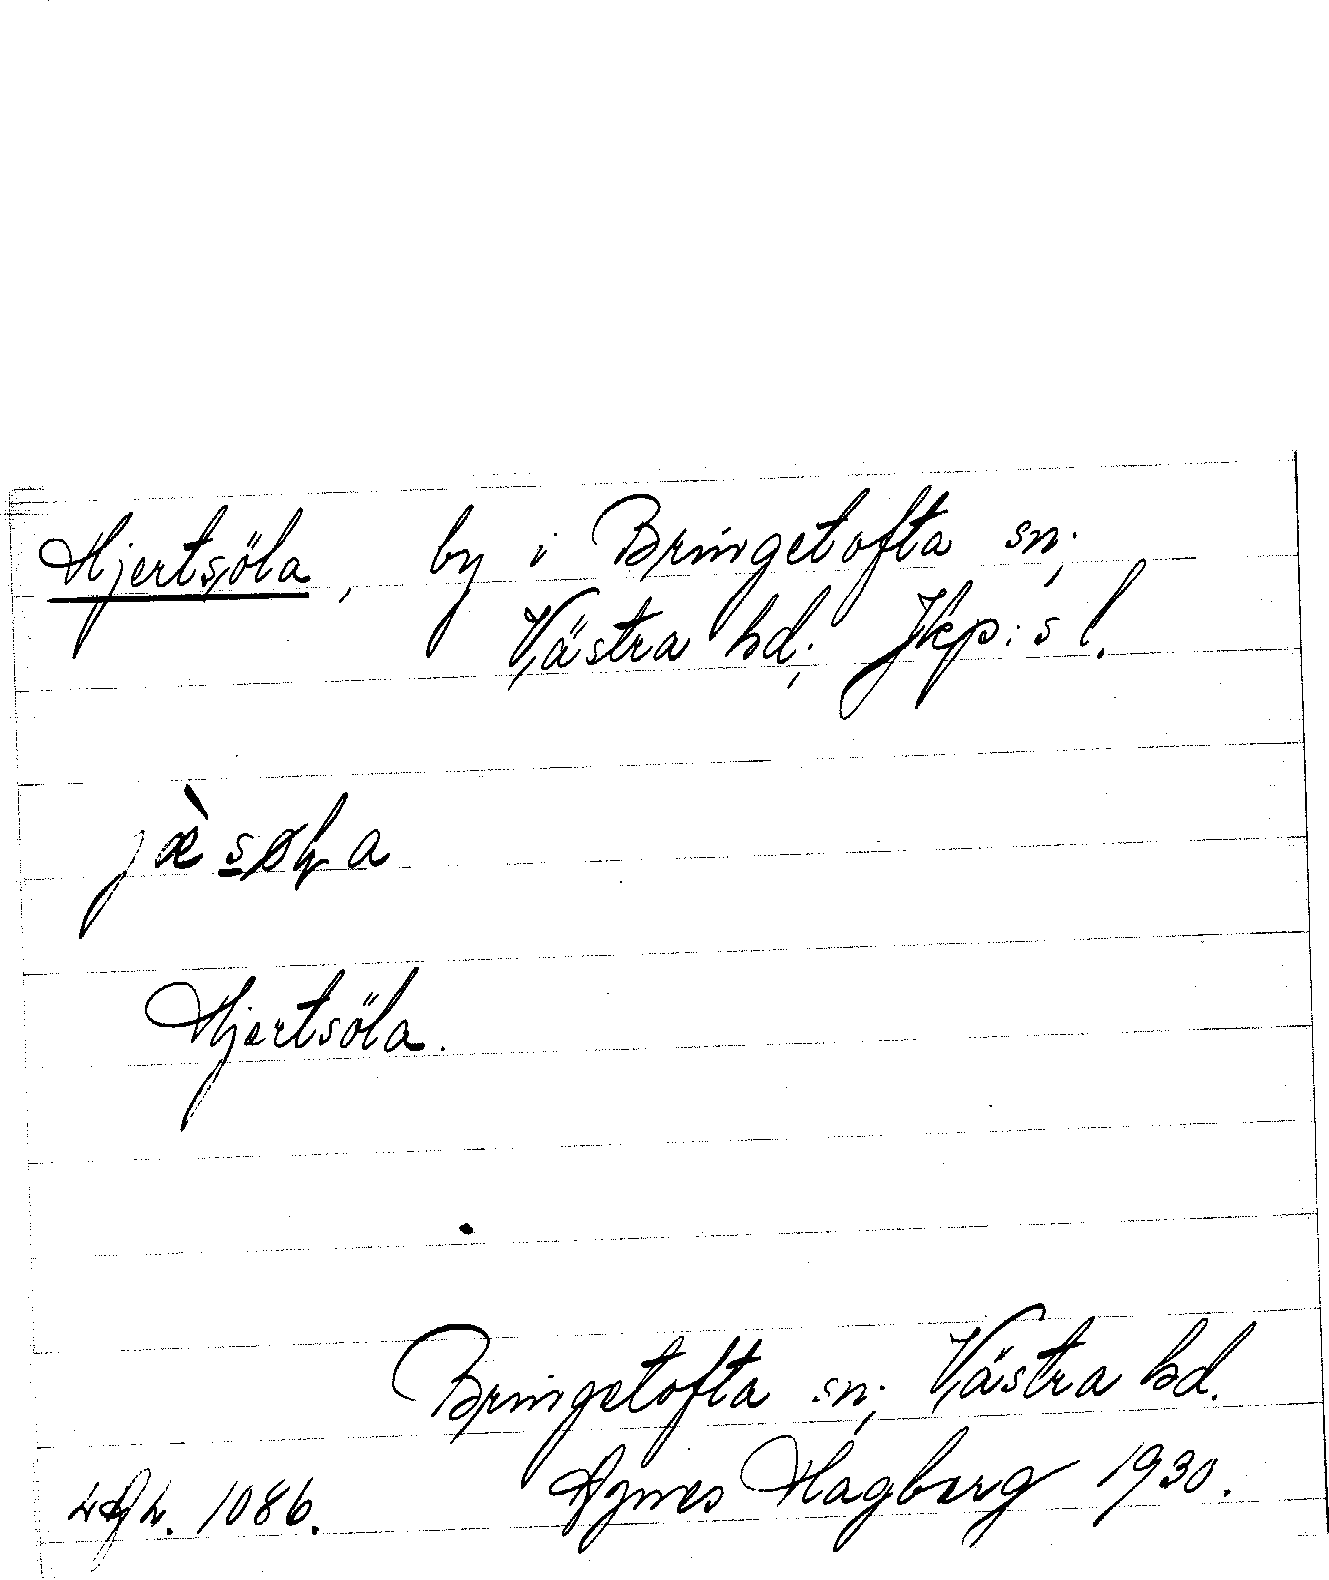 Hjertsöla, by i Bringetofta sn;
Västra hd; Jkp:s l.
Hjertsöla.
Bringetofta sn; Västra hd.
1086. Agnes Hagberg 1930.